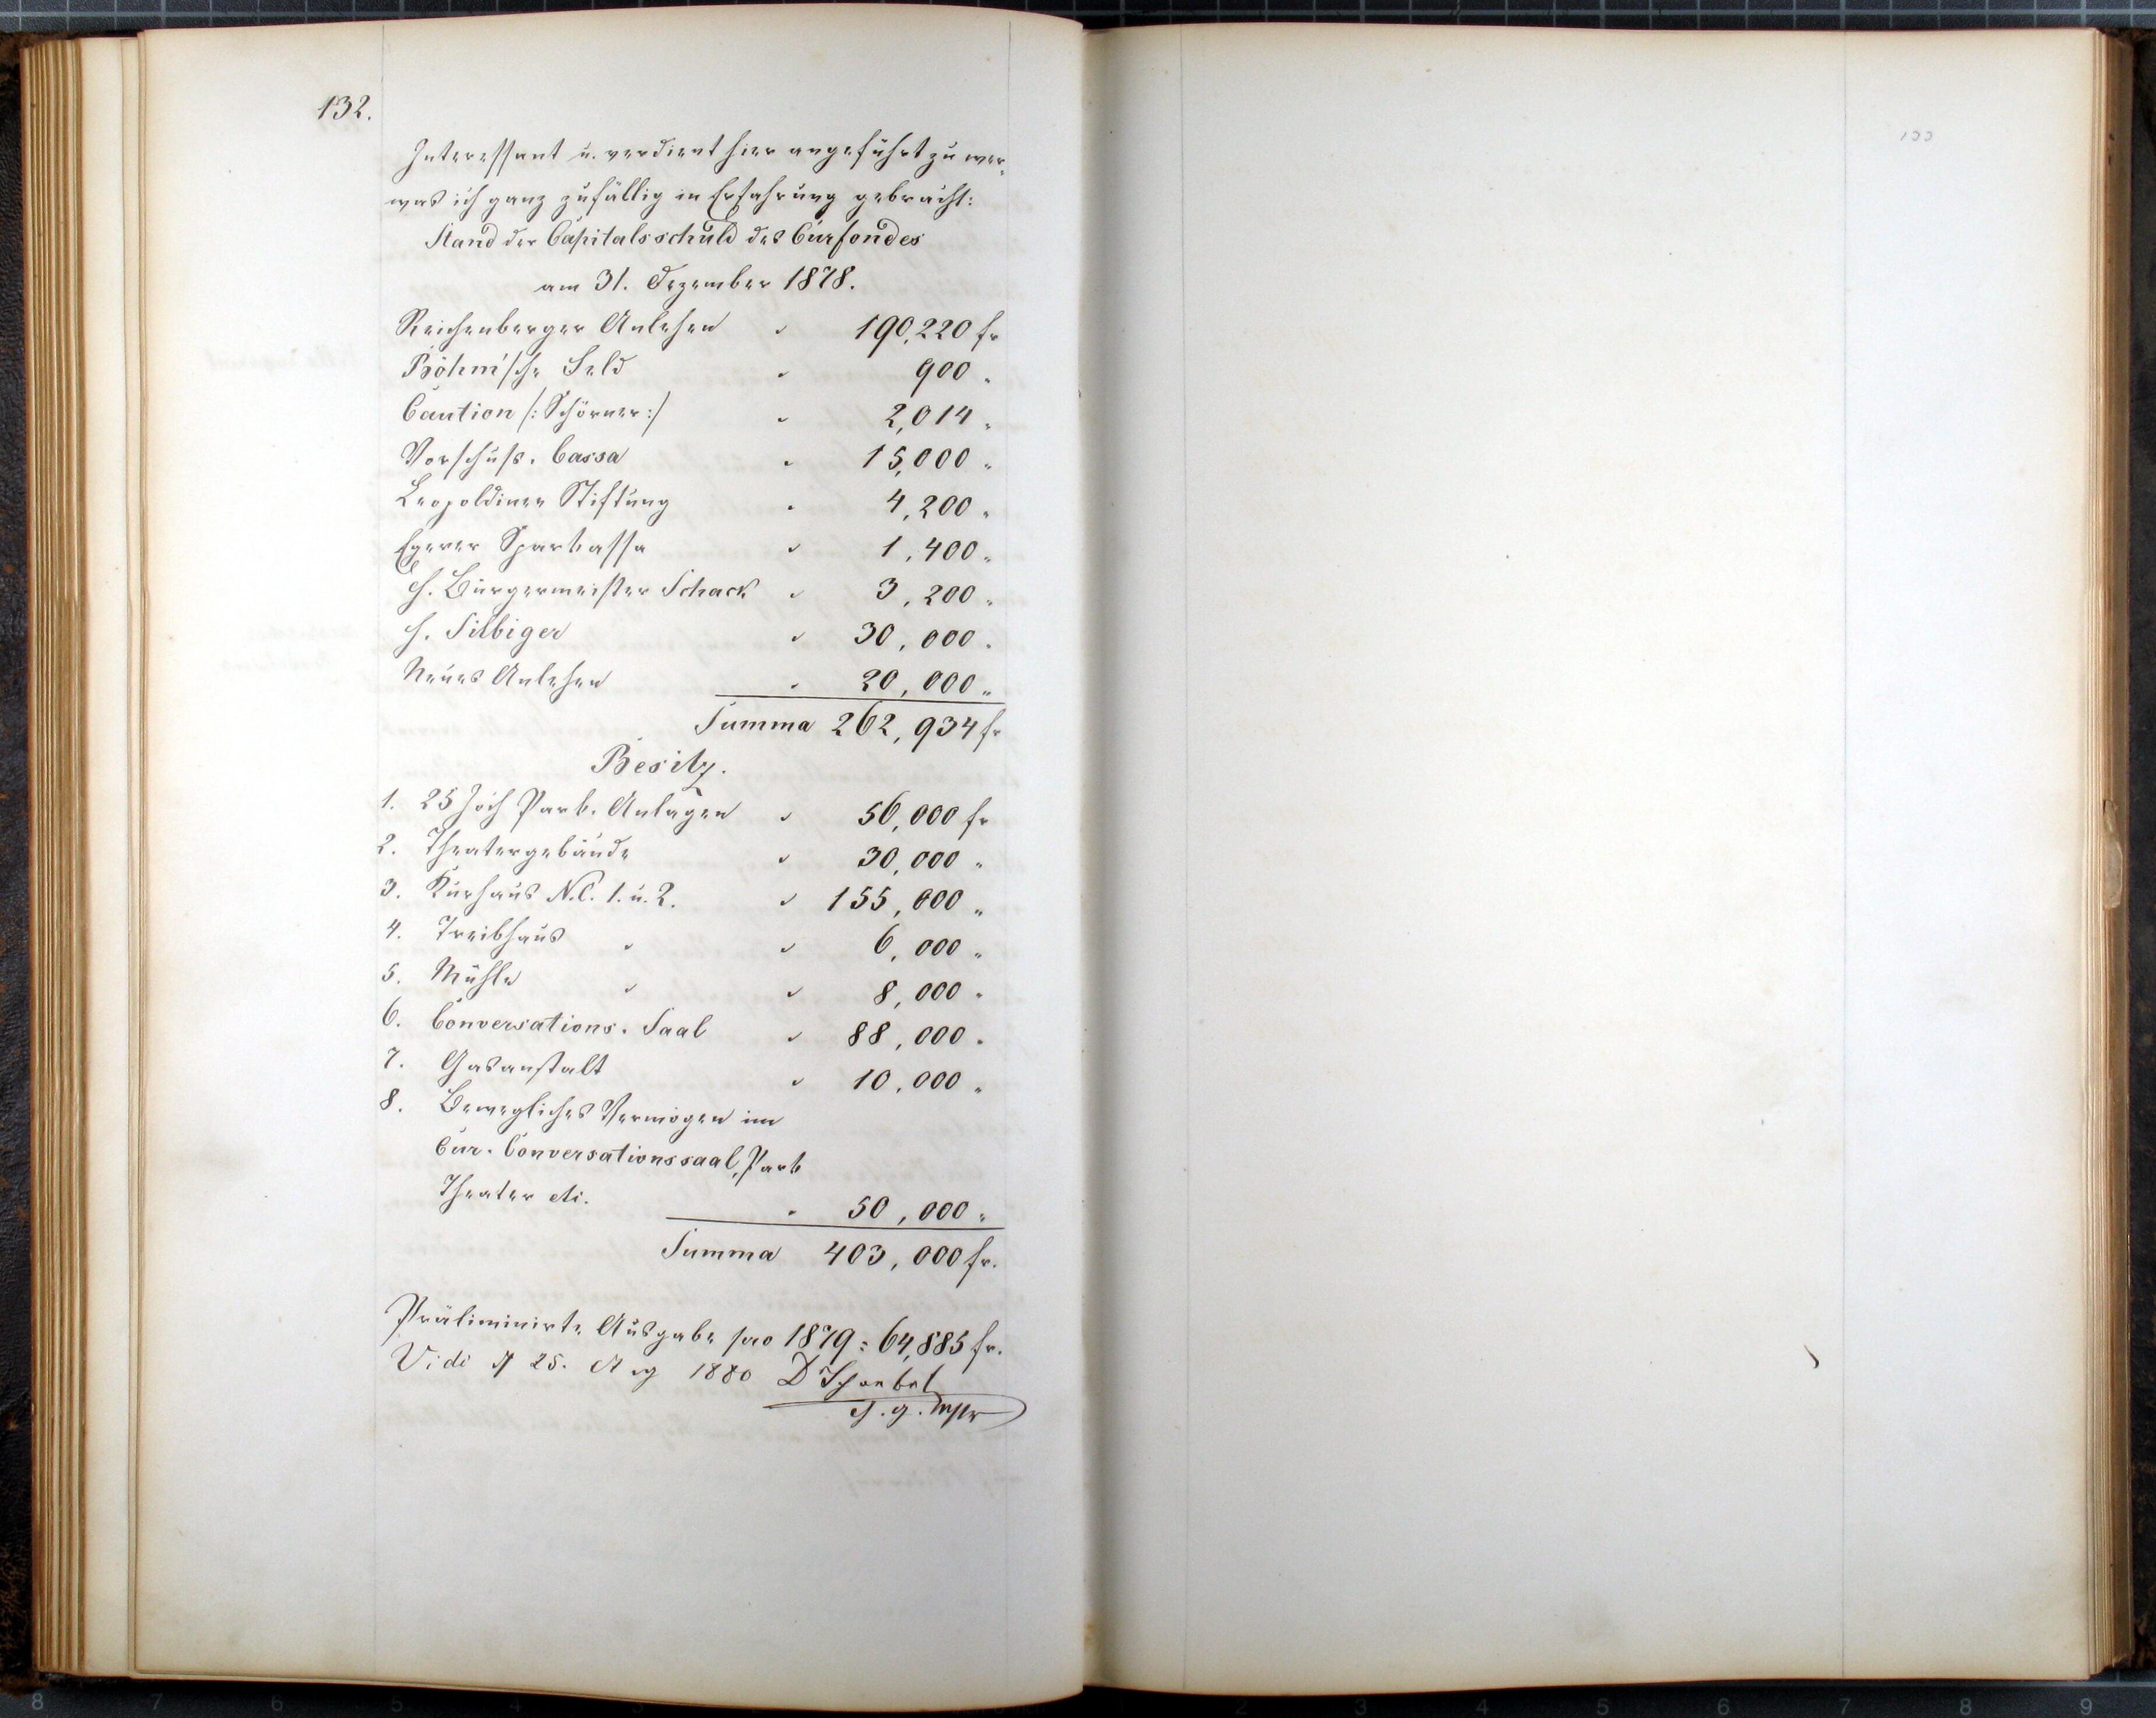 132.
Interessant u. verdient hier angeführt zu wer-
was ich ganz zufällig in Erfahrung gebracht:
Stand der Capitalsschuld des Curfondes
am 31. Dezember 1878.
Reichenberger Anlehen " 190,220 fr
Böhm'sche Feld " 900 "
Caution /: Schörner :/ " 2,014 "
Vorschuß-Cassa " 15,000 "
Leopoldiner Stiftung " 4,200 "
Egerer Sparkassa " 1,400 "
H. Bürgermeister Schack " 3,200 "
H. Silbiger " 30,000 "
Neues Anlehen " 20,000 "
Summa 262,934 fr
Besitz.
1. 25 Joch Park-Anlagen " 56,000 fr
2. Theatergebäude " 30,000 "
3. Kurhaus N.C. 1. u. 2. " 155,000 "
4. Treibhaus " " 6,000 "
5. Mühle " " 8,000 "
6. Conversations-Saal " 88,000 "
7. Gasanstalt " 10,000 "
8. Bewegliches Vermögen im
Cur-Conversationssaal, Park
Theater etc. " 50,000 "
Summa 403,000 fr.
Präliminirte Ausgabe pro 1879 = 64,885 fr.
Vidi 25. Aug 1880 D
133